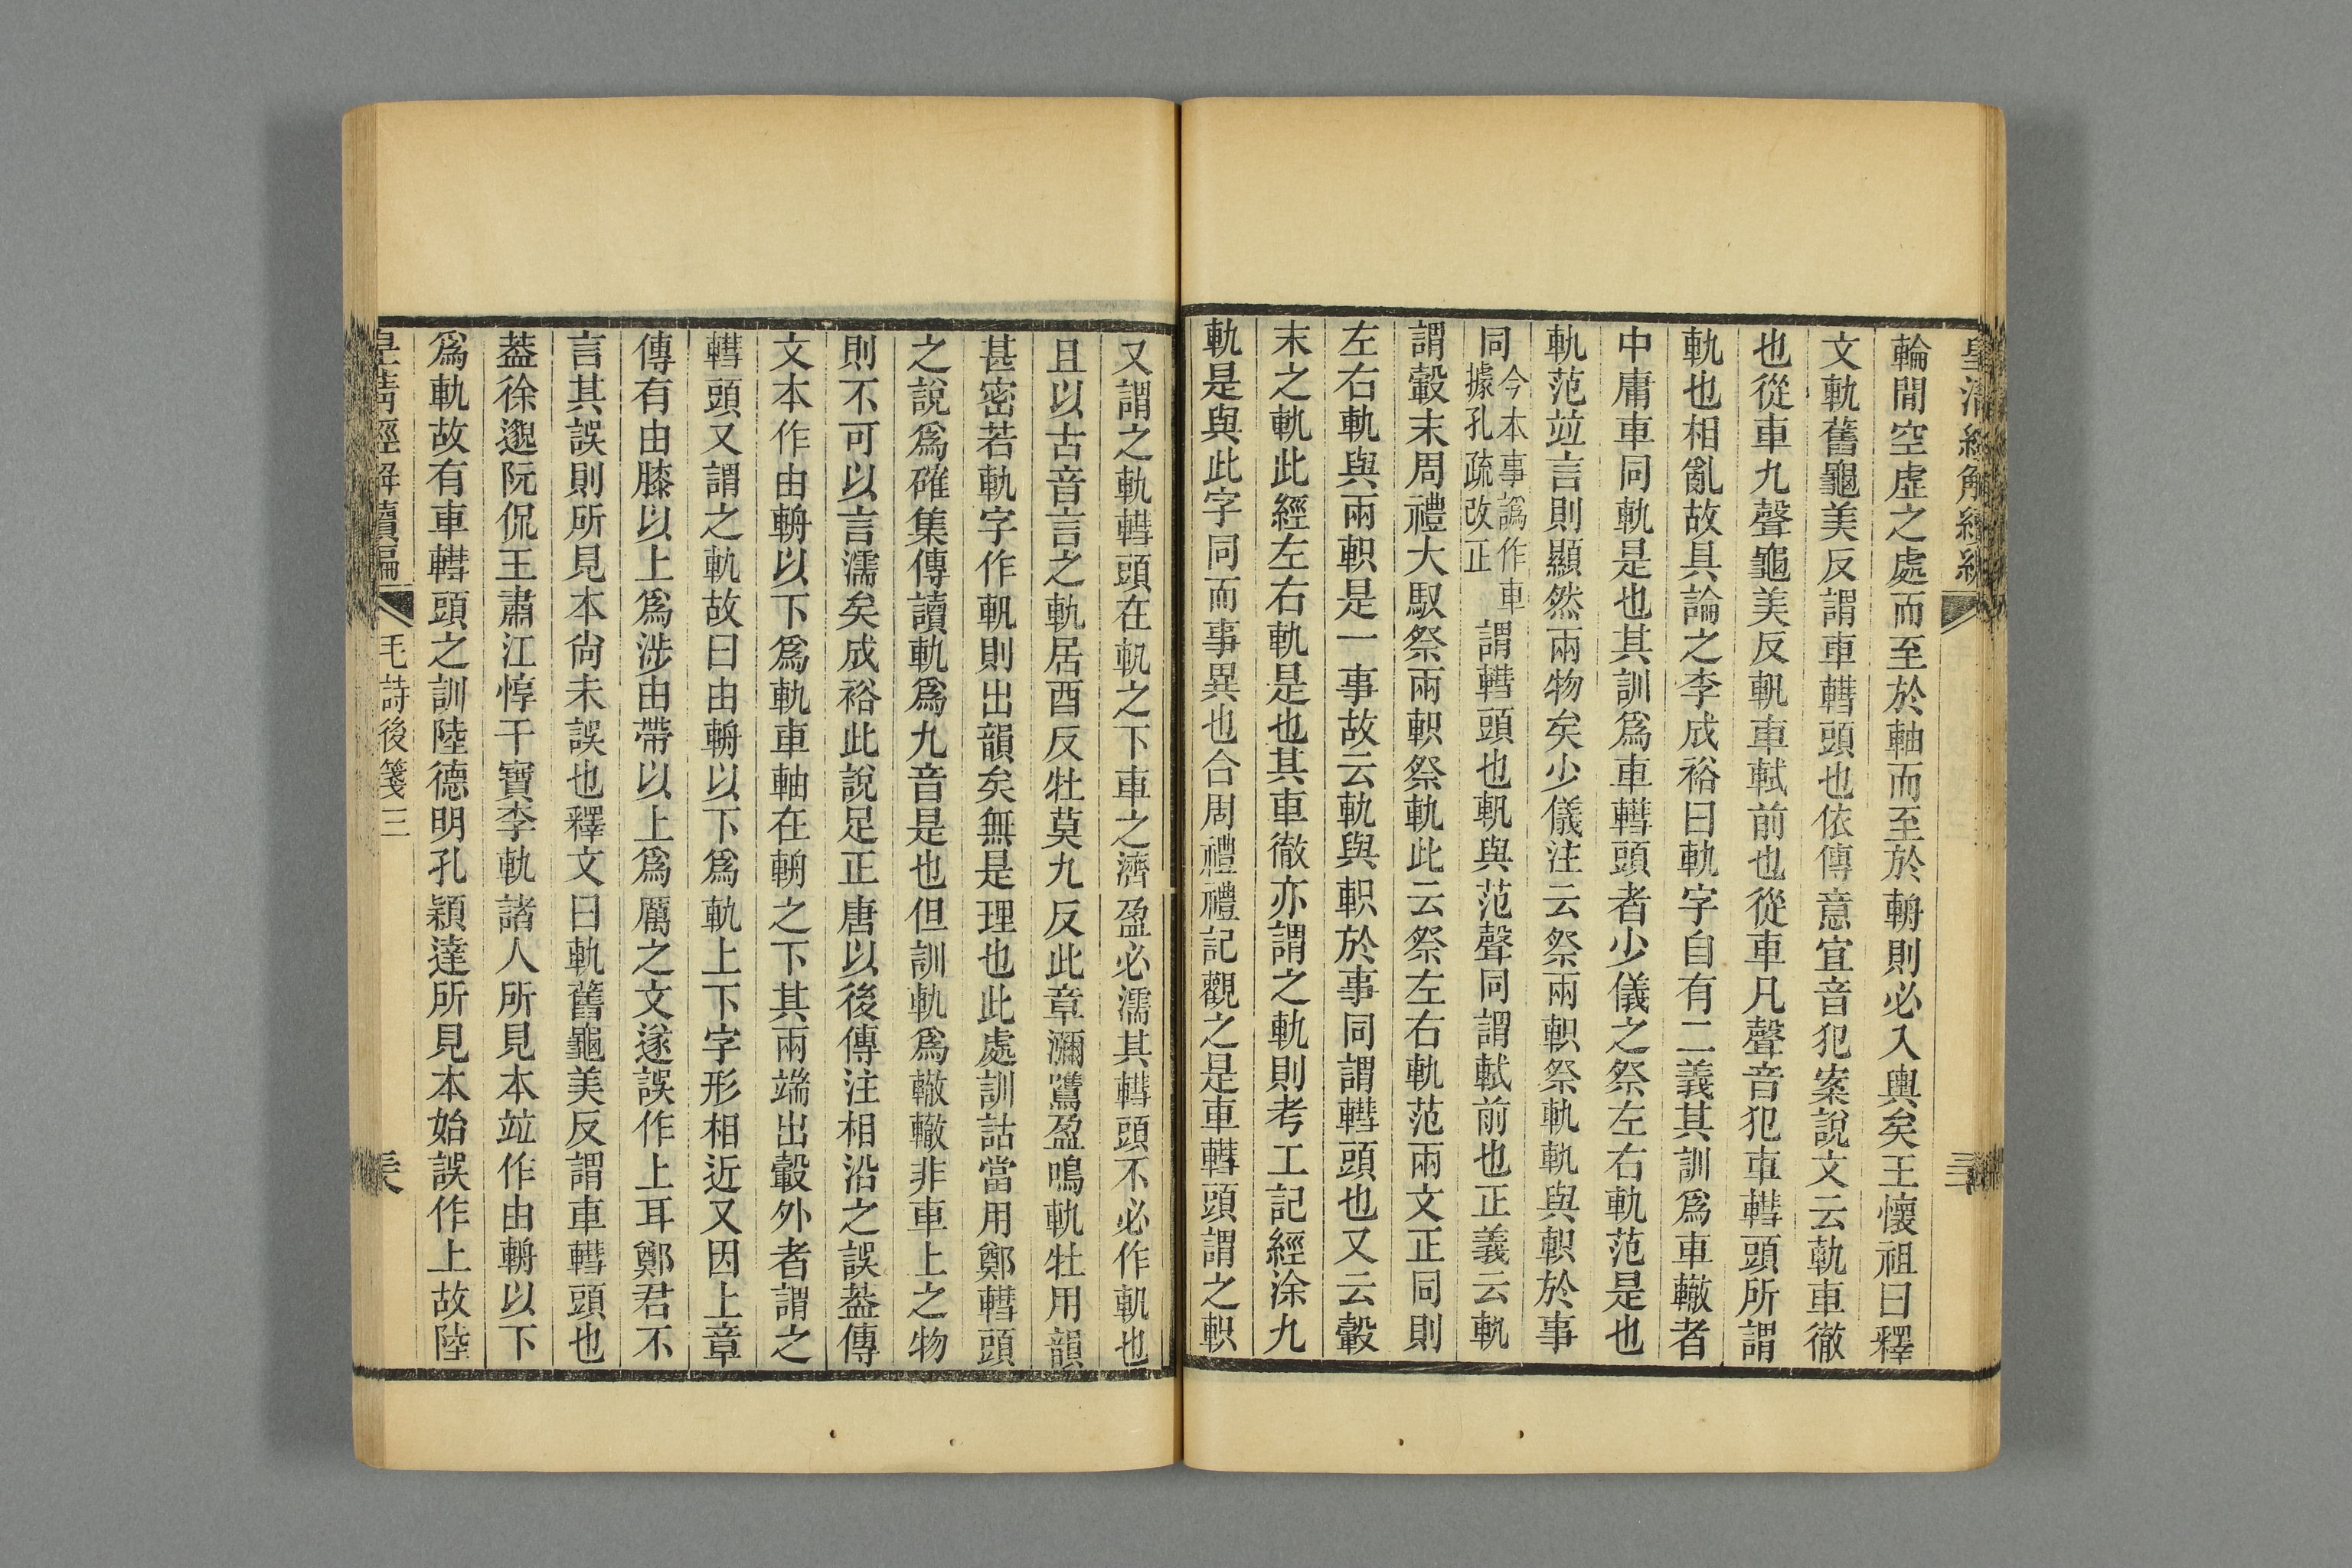 輪間空虛之處而至於軸而至於輈則必入輿矣王懷祖曰釋
文軌舊龜美反謂車轊頭也依傳意宜音犯案說文云軌車徹
也從車九聲龜美反軓車軾前也從車凡聲音犯車轊頭所謂
軌也相亂故具論之李成裕曰軌字自有二義其訓爲車轍者
中庸車同軌是也其訓爲車轊頭者少儀之祭左右軌范是也
軌范竝言則顯然兩物矣少儀注云祭兩軹祭軌軌與軹於事
同今本事譌作車據孔疏改正謂轊頭也軓與范聲同謂軾前也正義云軌
謂轂末周禮大馭祭兩軹祭軌此云祭左右軌范兩文正同則
左右軌與兩軹是一事故云軌與軹於事同謂轊頭也又云轂
末之軌此經左右軌是也其車徹亦謂之軌則考工記經涂九
軌是與此字同而事異也合周禮禮記觀之是車轊頭謂之軹
又謂之軌轊頭在軓之下車之濟盈必濡其轊頭不必作軓也
且以古音言之軌居酉反牡莫九反此章瀰鷕盈鳴軌牡用韻
甚密若軌字作軓則出韻矣無是理也此處訓詁當用鄭轊頭
之說爲確集傳讀軌爲九音是也但訓軌爲轍轍非車上之物
則不可以言濡矣成裕此說足正唐以後傳注相沿之誤葢傳
文本作由輈以下爲軌車軸在輈之下其兩端出轂外者謂之
轊頭又謂之軌故曰由輈以下爲軌上下字形相近又因上章
傳有由膝以上爲涉由帶以上爲厲之文遂誤作上耳鄭君不
言其誤則所見本尙未誤也釋文曰軌舊龜美反謂車轊頭也
葢徐邈阮侃王肅江惇干寶李軌諸人所見本竝作由輈以下
爲軌故有車轊頭之訓陸德明孔穎達所見本始誤作上故陸
皇清經解續編
毛詩後箋三